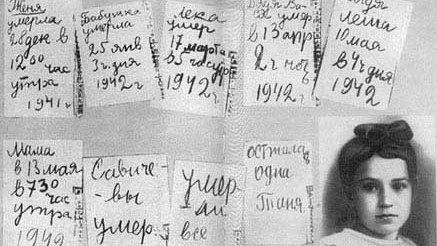 Женя
умерла
28 дек в
12 00 час
утра
1941 г
Бабушка
умерла
25 янв
3 ч. дня
1942 г
Лека
умер
17 марта
в 5 час утр
1942 г
Дядя Ва-
ся умер
в 13 апр
2 ч ноч
1942 г
Дядя
Леша
10 мая
в 4 ч дня
1942
Мама
в 13 мая
в 7 30
час
утра
1942
Савиче-
вы
умер
умер
ли
все
остала
одна
Таня